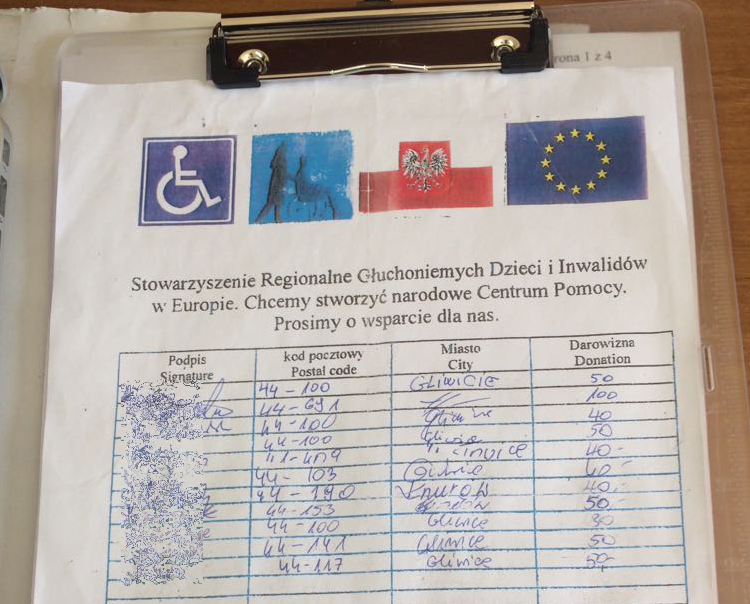 rona 1 z 4
Stowarzyszenie Regionalne Głuchoniemych Dzieci i Inwalidów
w Europie. Chcemy stworzyć narodowe Centrum Pomocy.
Prosimy o wsparcie dla nas.
Podpis kod pocztowy Miasto Darowizna
Signature Postal code City Donation
44-100 GLIWICE 50
44-691 100
44-100 Gliwice 40
44-100 50
40
44-103 Gliwice
44-190 Knurów 40
44-153 50
44-100 Gliwice
44-141 Gliwice 50
44-117 Gliwice